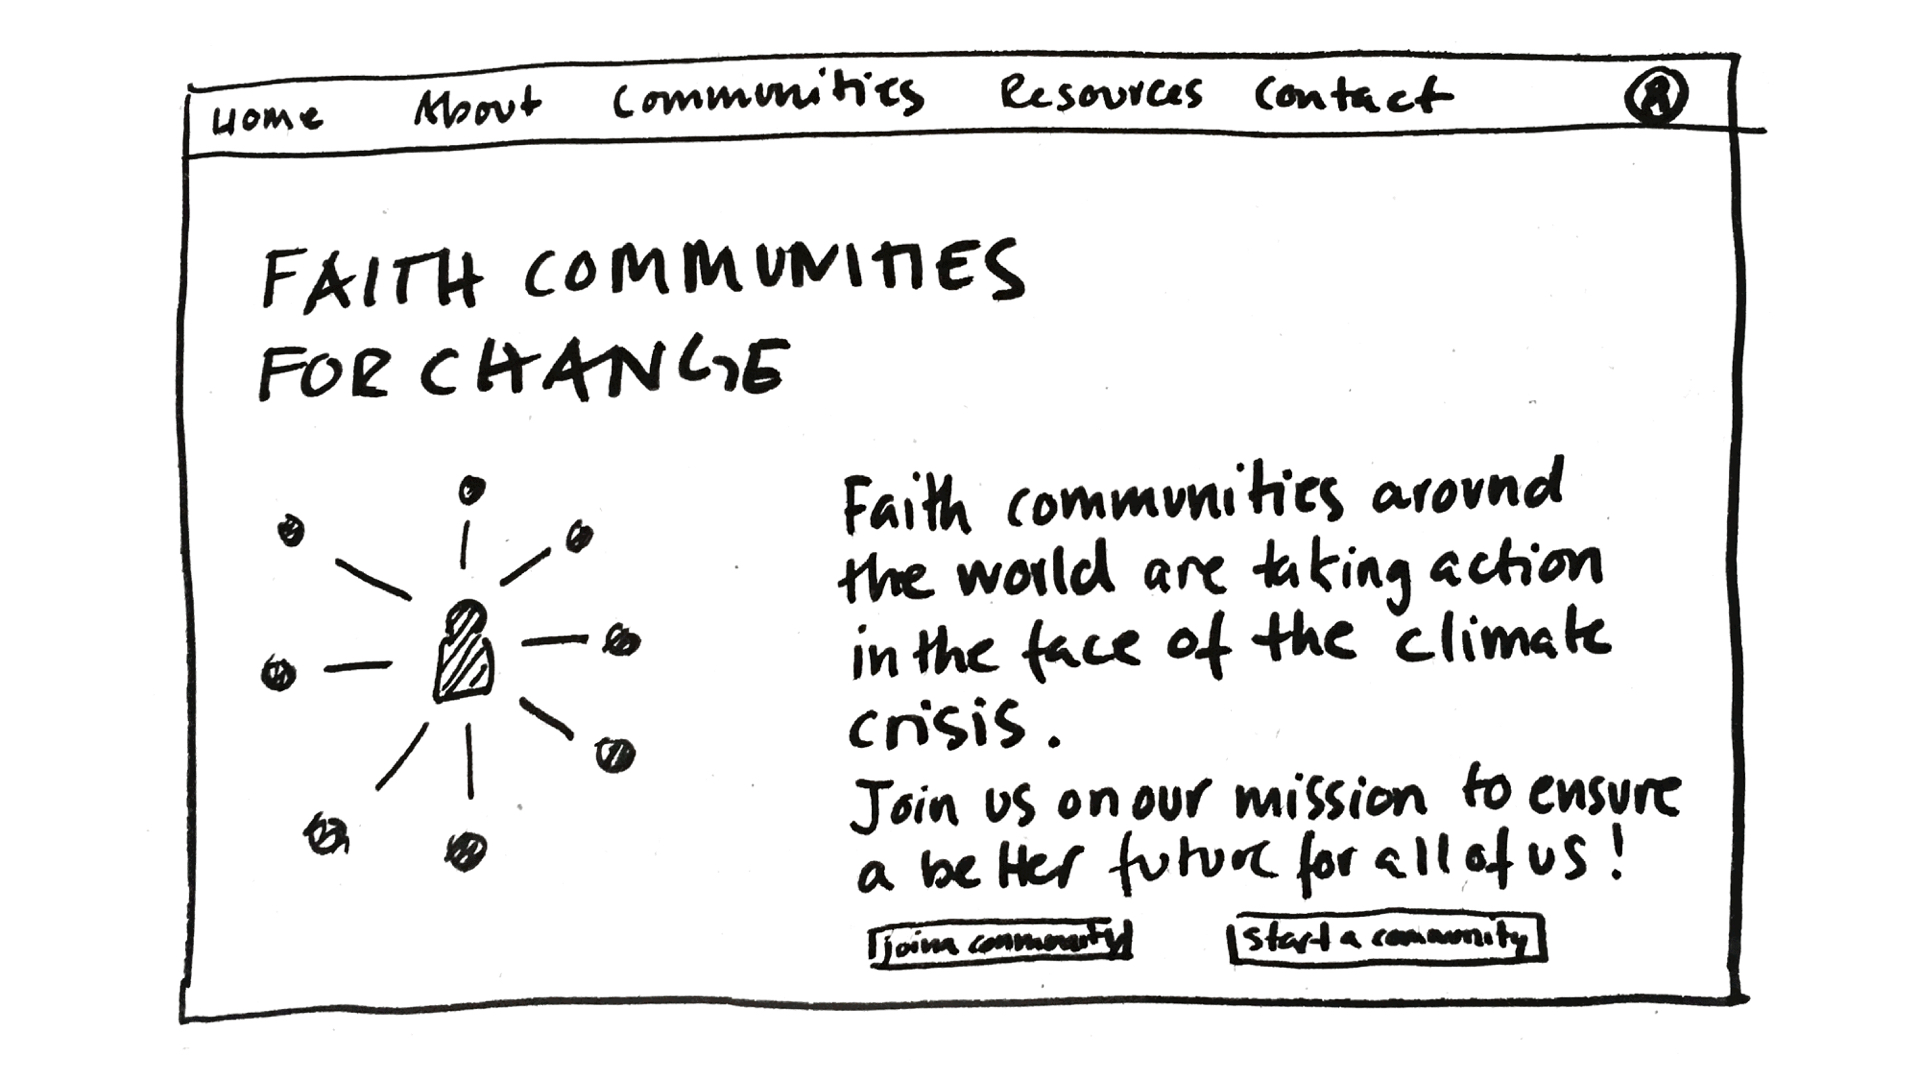 Home About Communities Resources Contact
FAITH COMMUNITIES
FOR CHANGE
Faith communities around
the world are taking action
in the face of the climate
crisis.
Join us on our mission to ensure
a better future for all of us!
join a community start a community